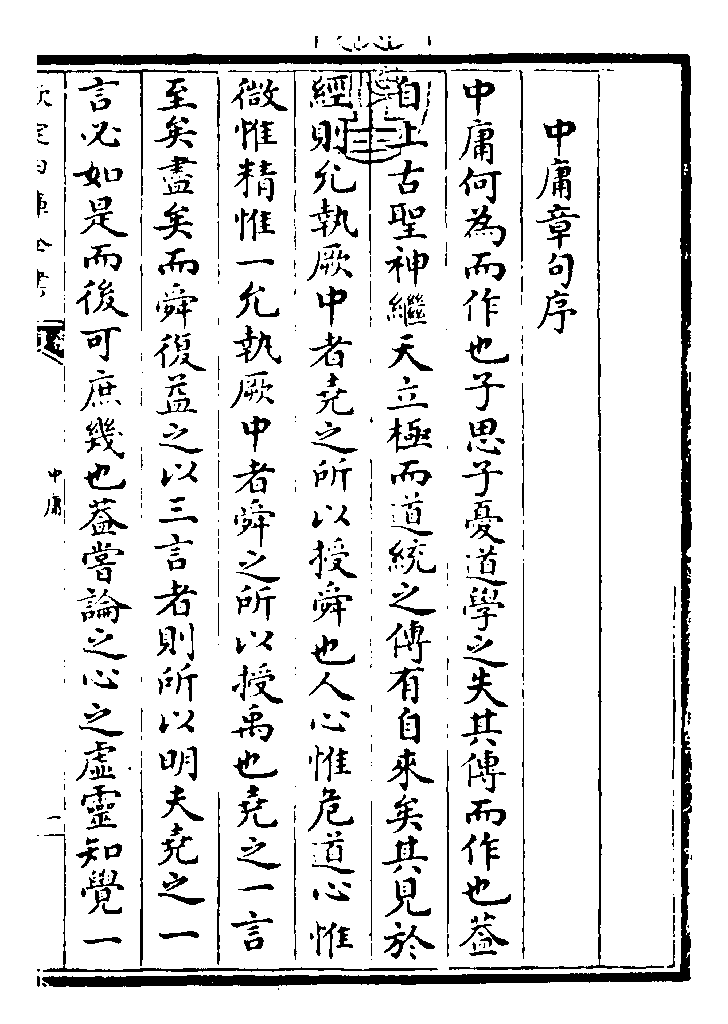 中庸章句序
中庸何為而作也子思子憂道學之失其傳而作也葢
自上古聖神繼天立極而道統之傳有自來矣其見於
經則允執厥中者堯之所以授舜也人心惟危道心惟
微惟精惟一允執厥中者舜之所以授禹也堯之一言
至矣盡矣而舜復益之以三言者則所以明夫堯之一
言必如是而後可庶幾也葢嘗論之心之虛靈知覺一
欽定四庫全書
中庸